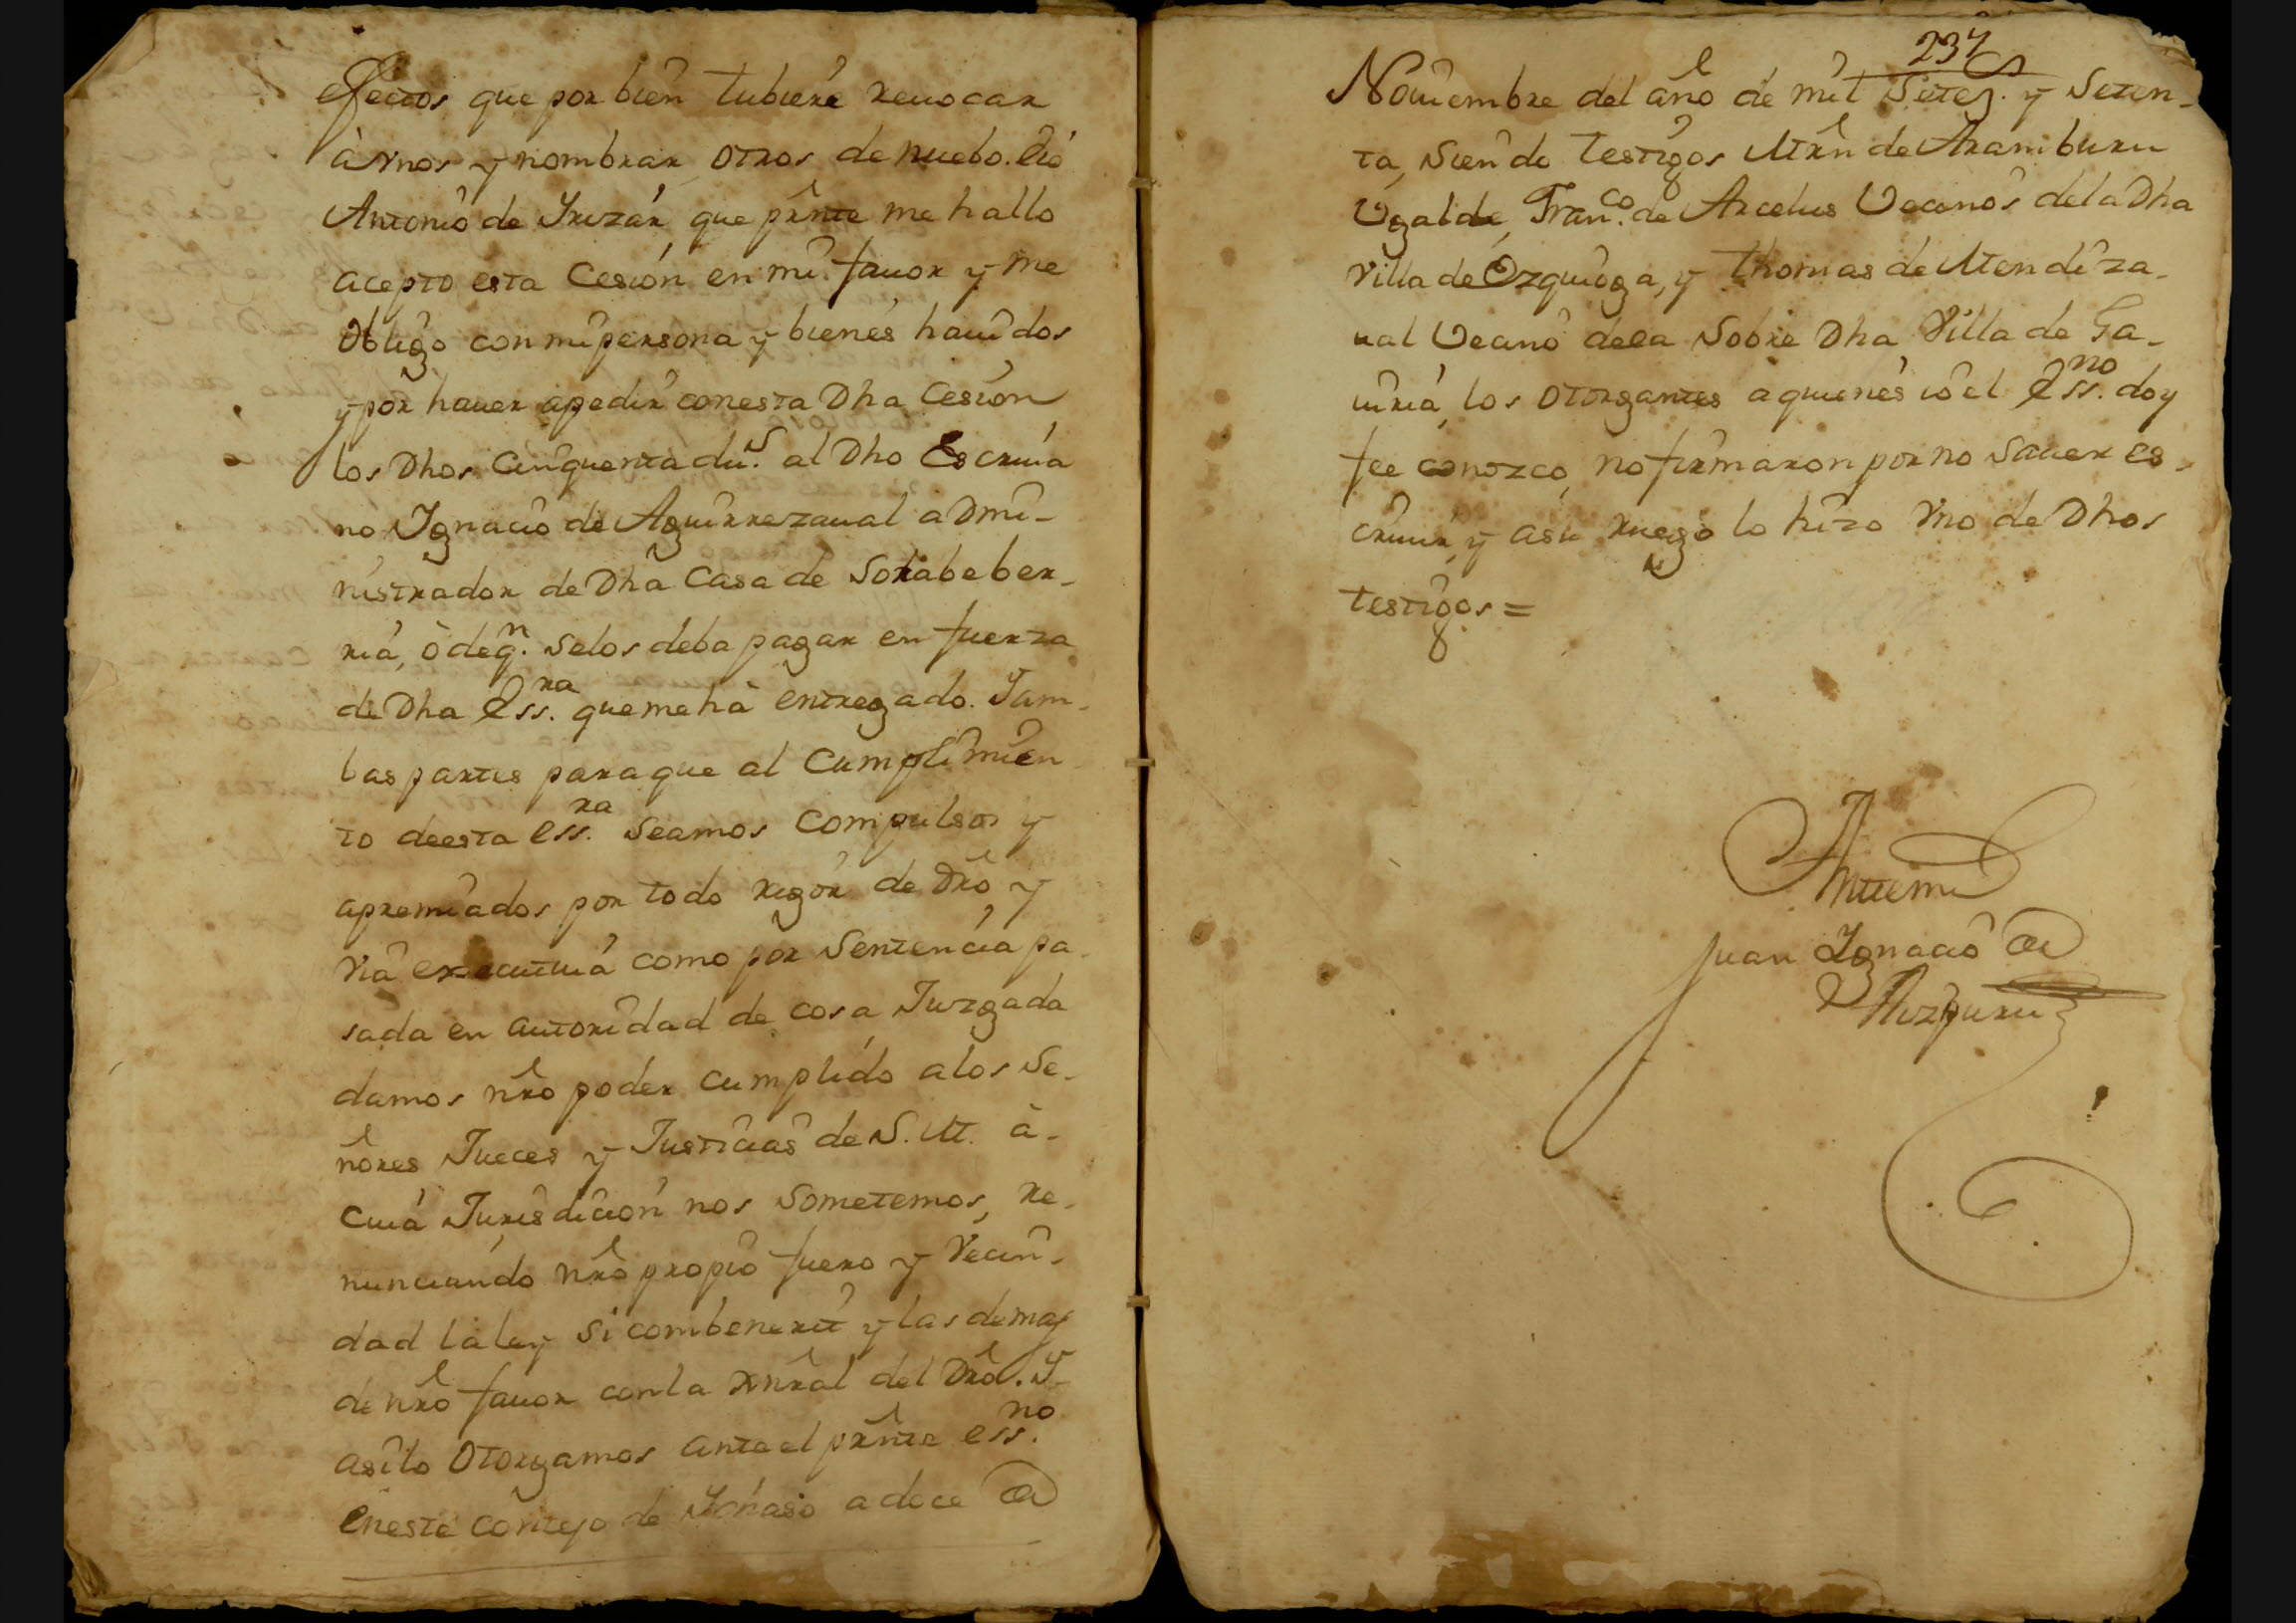 efectos que por bien tubiere reuocar
à vnos y nombrar otros de nuebo. Eio
Antonio de Yrizár que prȇnte me hallo
acepto esta Cesion en mi fauor y me
obligo con mi persona y bienes hauidos
y por hauer apedir con esta Dha Cesion
los Dhos Cinquenta du.s al Dho Escriua
no Ygnacio de Aguirrezaual admi-
nistrador de Dha Casa de Sorabeber-
ria, ò de q.n selos deba pagar en fuerza
de Dha Ess.ra que me hà entregado. Yam-
bas partes para que al Cumplimien
to de esta ess.ra seamos compulsos y
apremiados por todo rigor de Dr̃o y
via executiua como por Sentencia pa-
sada en autoridad de cosa Juzgada
damos nr̃o poder cumplido alos Se-
ñores Jueces y Justicias de S. M. à-
cuia Jurisdicion nos sometemos, re-
nunciando nr̃o propio fuero y Vecin-
dad la ley si combenerit y las demas
de nr̃o fauor con la xnr̃al del Dr̃o. Y-
asilo otorgamos ante el pr̃nte ess.no
en este concejo de Ychaso a doce de
237
Nouiembre del año de mil Setez. y Seten-
ta, siendo testigos Mrñ de Aramburu
Ugalde, Fran.co de Arcelus Vecinos dela Dha
Villa de Ezquioga, y Thomas de Mendiza-
ual Vecino dela Sobre Dha Villa de Ga-
uiria, los otorgantes a quienes io el Ess.no doy
fee conozco, no firmaron por no sauer es-
criuir, y asu ruego lo hizo vno de Dhos
testigos =
Antemi
Juan Ygnacio de
Aizpuru